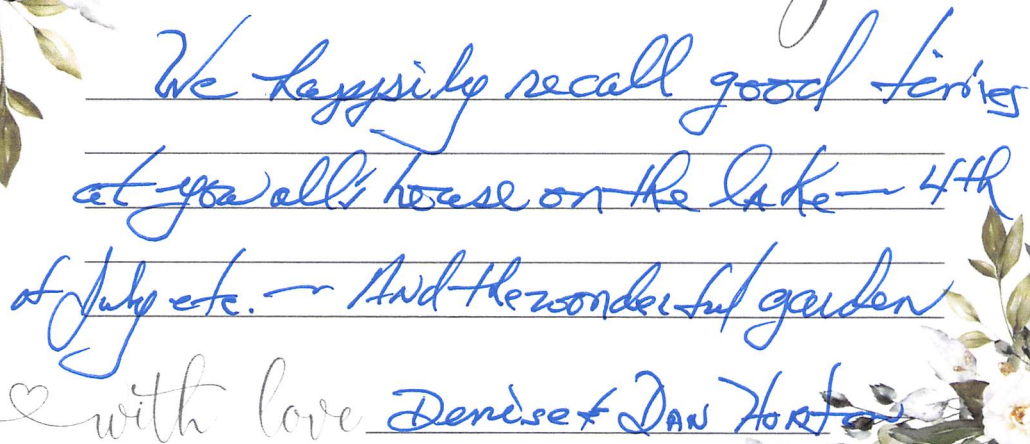 We happily recall good times
at you all's house on the lake — 4th
of July etc. — And the wonderful garden
with love Denise & Dan Horton